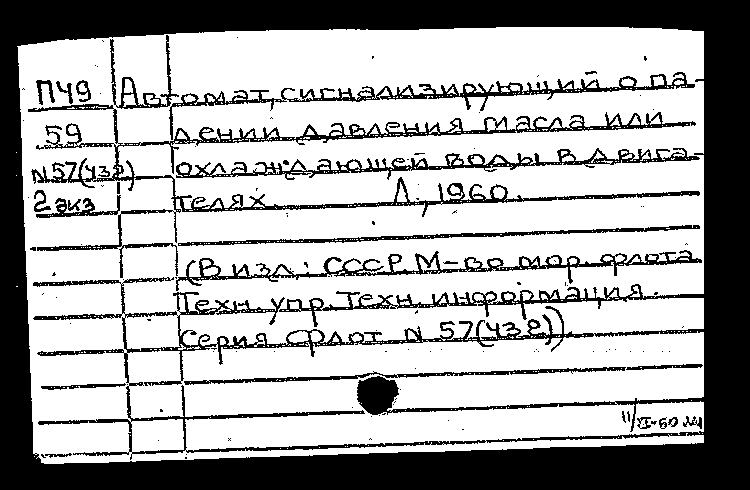 П49 Автомат, сигнализирующий о па-
59 дении давления масла или
N57(438) охлаждающей воды в двига-
2 экз телях. Л., 1960.
(В изд.: СССР. М-во мор. флота
Техн. упр. Техн. информация.
Серия Флот N 57(438))
11/XI-60